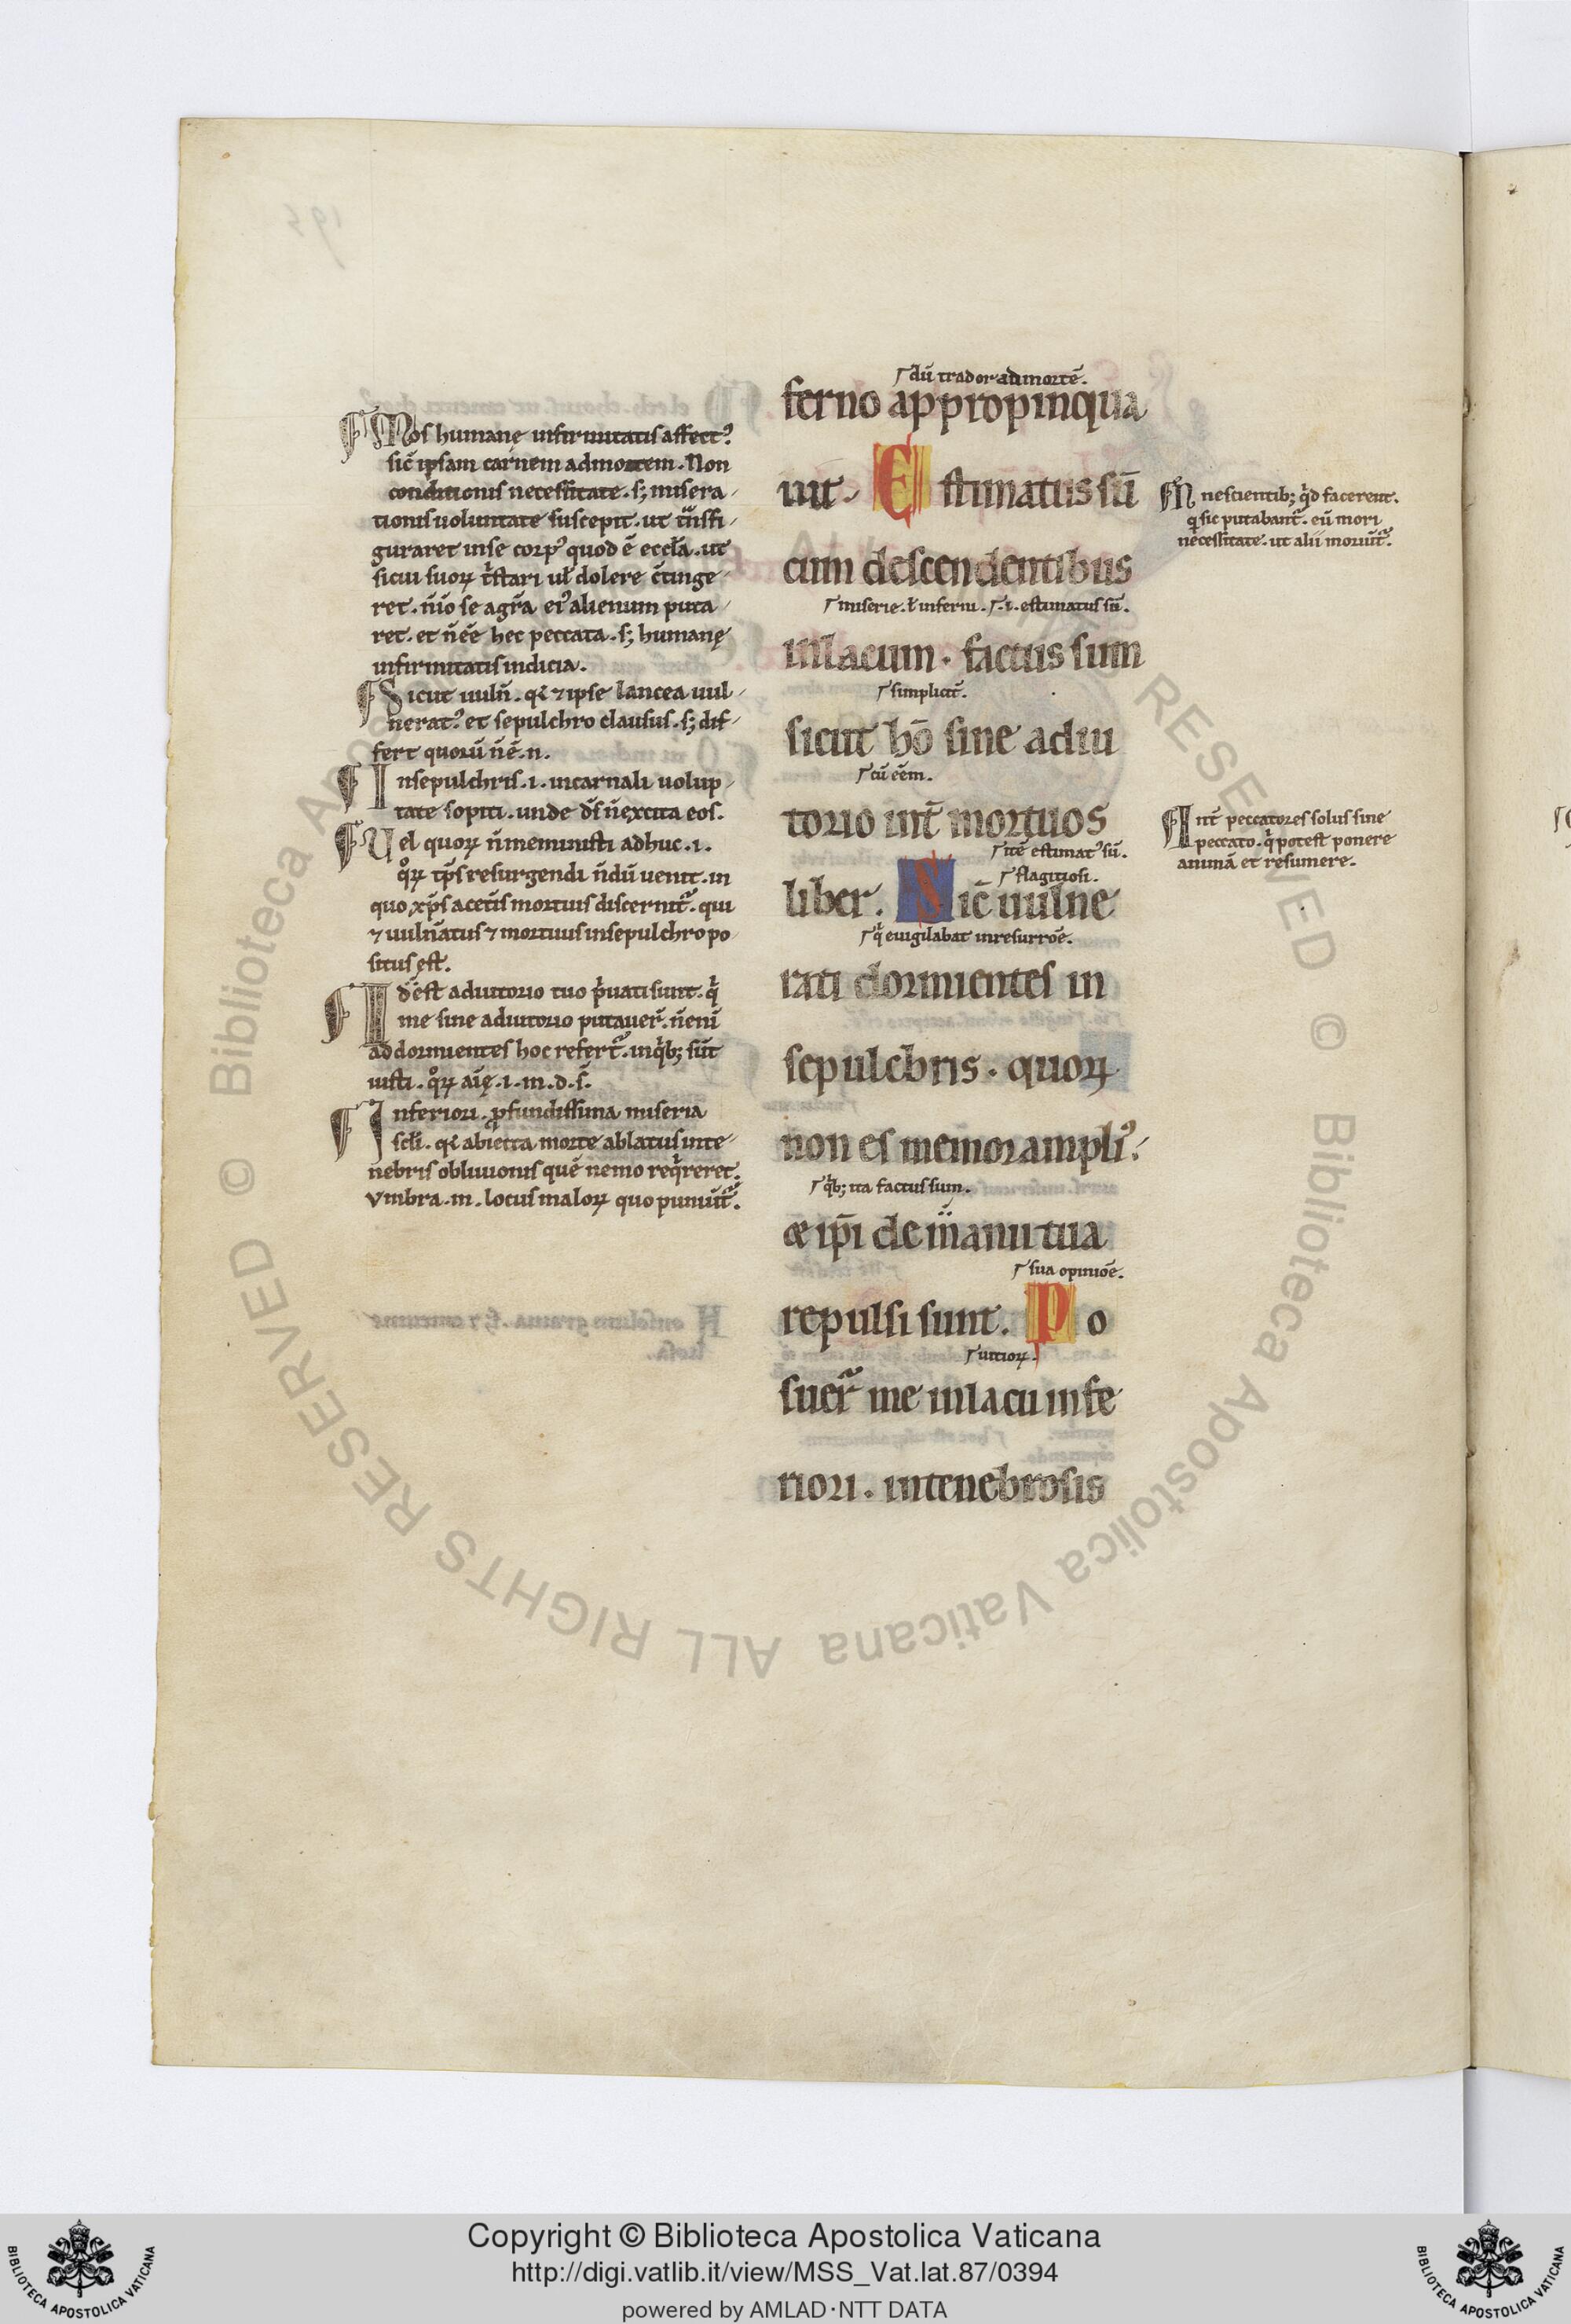 Mos humanę infirmitatis affect᷒
sic̄ ipsam carnem admortem. Non
conditionis necessitate. s; misera-
tionis uoluntate suscepit. ut t̄nsfi-
guraret inse corp᷒ quod ē eccl̄a. ut
sicui suoꝝ
ret. n̄uo se
ret. et n̄ eē hec peccata. s; humanę
infirmitatis indicia.
Sicut uuln̄. qꝛ ⁊ ipse lancea uul-
nerat᷒ et sepulchro clausus. s; dif-
fert quorū n̄ ē. n.
Insepulchris .i. incarnali uolup-
tate sopiti. unde d̄s n̄ excita eos.
Vel quoꝝ n̄ meministi adhuc .i.
qͦꝝ tp̄s resurgendi n̄dū uenit. in
quo xp̄s acet̄is mortuis discernit᷑. qui
⁊ uuln̄atus ⁊ mortuus insepulchro po
situs est.
Id est adiutorio tuo p̄uati sunt. qͥ
me sine adiutorio putauer̄. n̄ enī
ad dormientes hoc refert᷑. inqͥb; sūt
iusti. qͦꝝ aīę .i. m. d. s̄.
Inferiori. ꝓfundissima miseria
scl̄i. qꝛ abiecta morte ablatus inte-
nebris obliuionis quē nemo reqͥreret.
Vmbra .m. locus maloꝝ quo puniūt᷑.
dū trador ad mortē.
ferno appropinqua
uit. Estimatus sū
cum descendentibus
miserie. ł inferni. .i. estimatus sū.
inlacum. factus sum
simplicit̄.
sicut hō sine adiu
cū eēm.
torio int̄ mortuos
itē estimat᷒ sū.
flagitiosi.
liber. Sic̄ uulne
qͥ euigilabat inresurroē.
rati dormientes in
sepulchris. quoꝝ
non es memor ampli᷒
qͥb; ita factus sum.
⁊ ip̄i de manu tua
sua opinioē.
repulsi sunt. Po
uitioꝝ.
suer᷑ me inlacu infe
riori. intenebrosis
nescientib; qͥd facerent.
q̄ sic putabant᷑. eū mori
necessitate. ut alii moriūt᷑.
Int̄ peccatores solus sine
peccato. qͥ potest ponere
animā et resumere.
Copyright © Biblioteca Apostolica Vaticana
http://digi.vatlib.it/view/MSS_Vat.lat.87/0394
powered by AMLAD·NTT DATA
BIBLIOTECA APOSTOLICA VATICANA
BIBLIOTECA APOSTOLICA VATICANA
© Biblioteca Apostolica Vaticana ALL RIGHTS RESERVED © Biblioteca Apostolica Vaticana ALL RIGHTS RESERVED